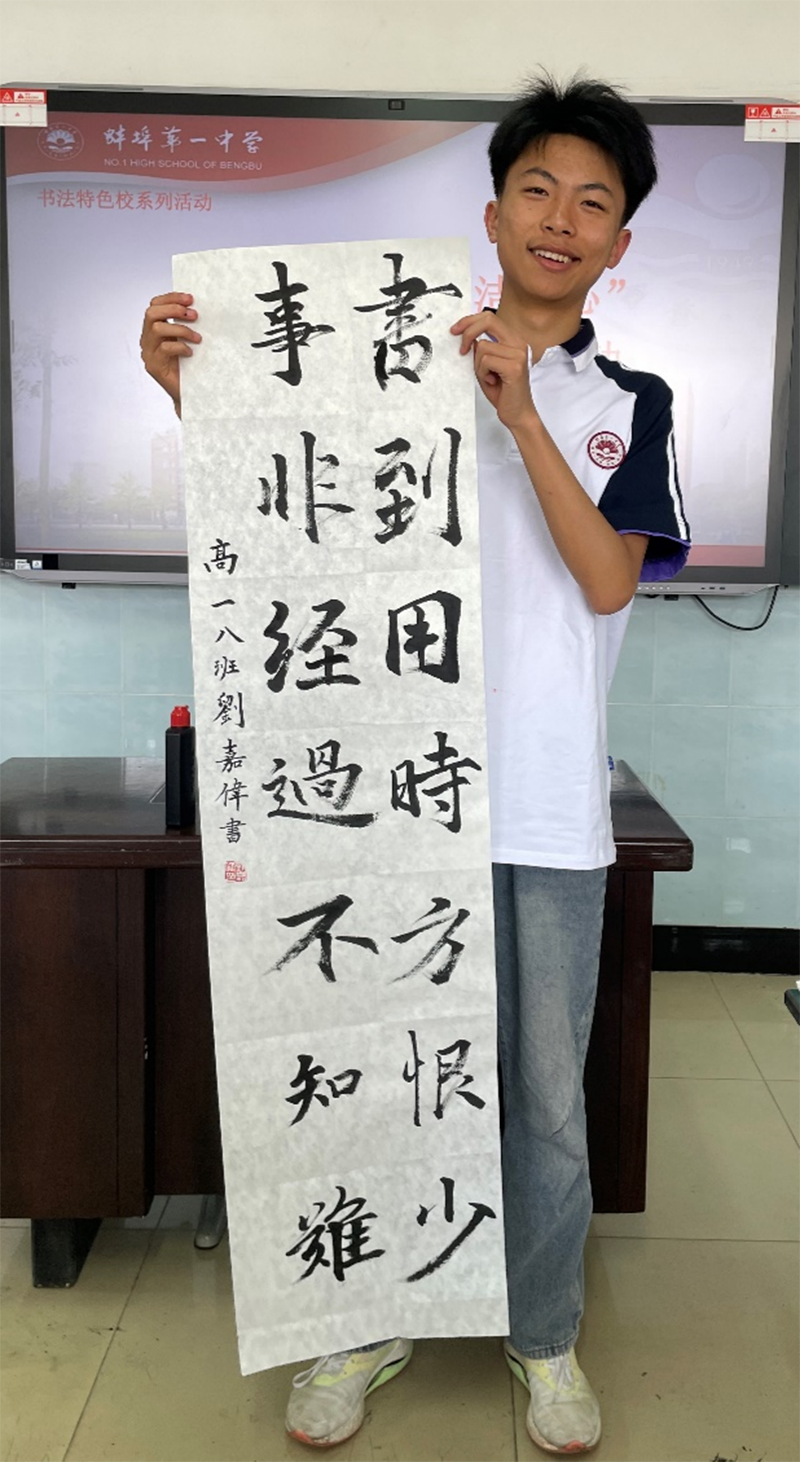 蚌埠第一中学
NO.1 HIGH SCHOOL OF BENGBU
书法特色校系列活动
書到用時方恨少
事非经過不知難
高一八班劉嘉偉書